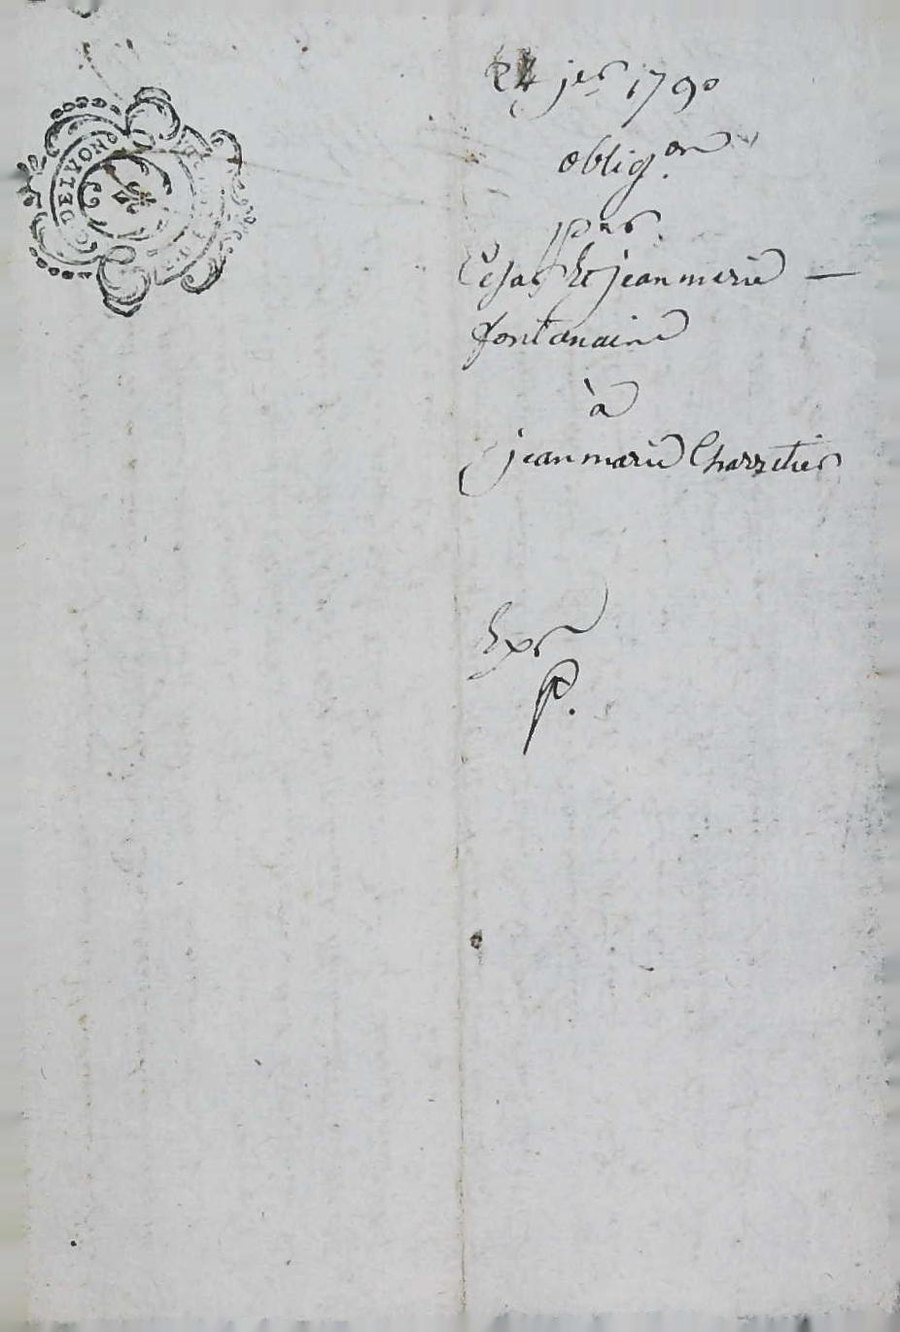 DELYON
24 jer 1790
obligon
par
Cesar Et jean marie —
fontanaine
à
jean marie Charretier
Expn
P.